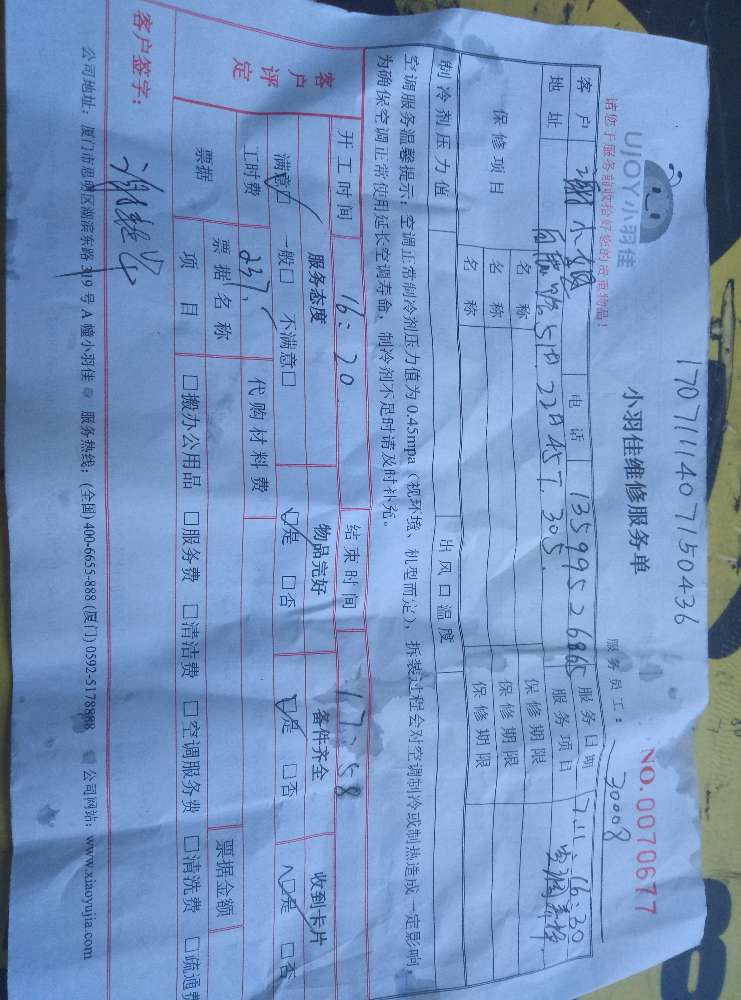 17071114071504​36
UJOY小羽佳
小羽佳维修服务单
NO.0070677
请您于服务前收拾好您的贵重物品！
服务员工：30008
客户 谢小姐 电话 13599526865 服务日期 7.11.16:30
地址 服务项目 空调养护
保修项目 名称 保修期限
名称 保修期限
名称 保修期限
制冷剂压力值 出风口温度
空调服务温馨提示：空调正常制冷剂压力值为0.45mpa（视环境、机型而定），拆装过程会对空调制冷或制热造成一定影响，
为确保空调正常使用延长空调寿命，制冷剂不足时请及时补充。
开工时间 16:20 结束时间 17:58
客户评定 服务态度 物品完好 备件齐全 收到卡片
满意□ 一般□ 不满意□ □是 □否 □是 □否 □是 □否
工时费 237. 代购材料费
票据 票据名称 票据金额
项目 □搬办公用品 □服务费 □清洁费 □空调服务费 □清洗费 □疏通费
客户签字：
公司地址：厦门市思明区湖滨东路319号A幢小羽佳 服务热线：(全国)400-6655-888 (厦门)0592-5178888 公司网站：www.xiaoyujia.com